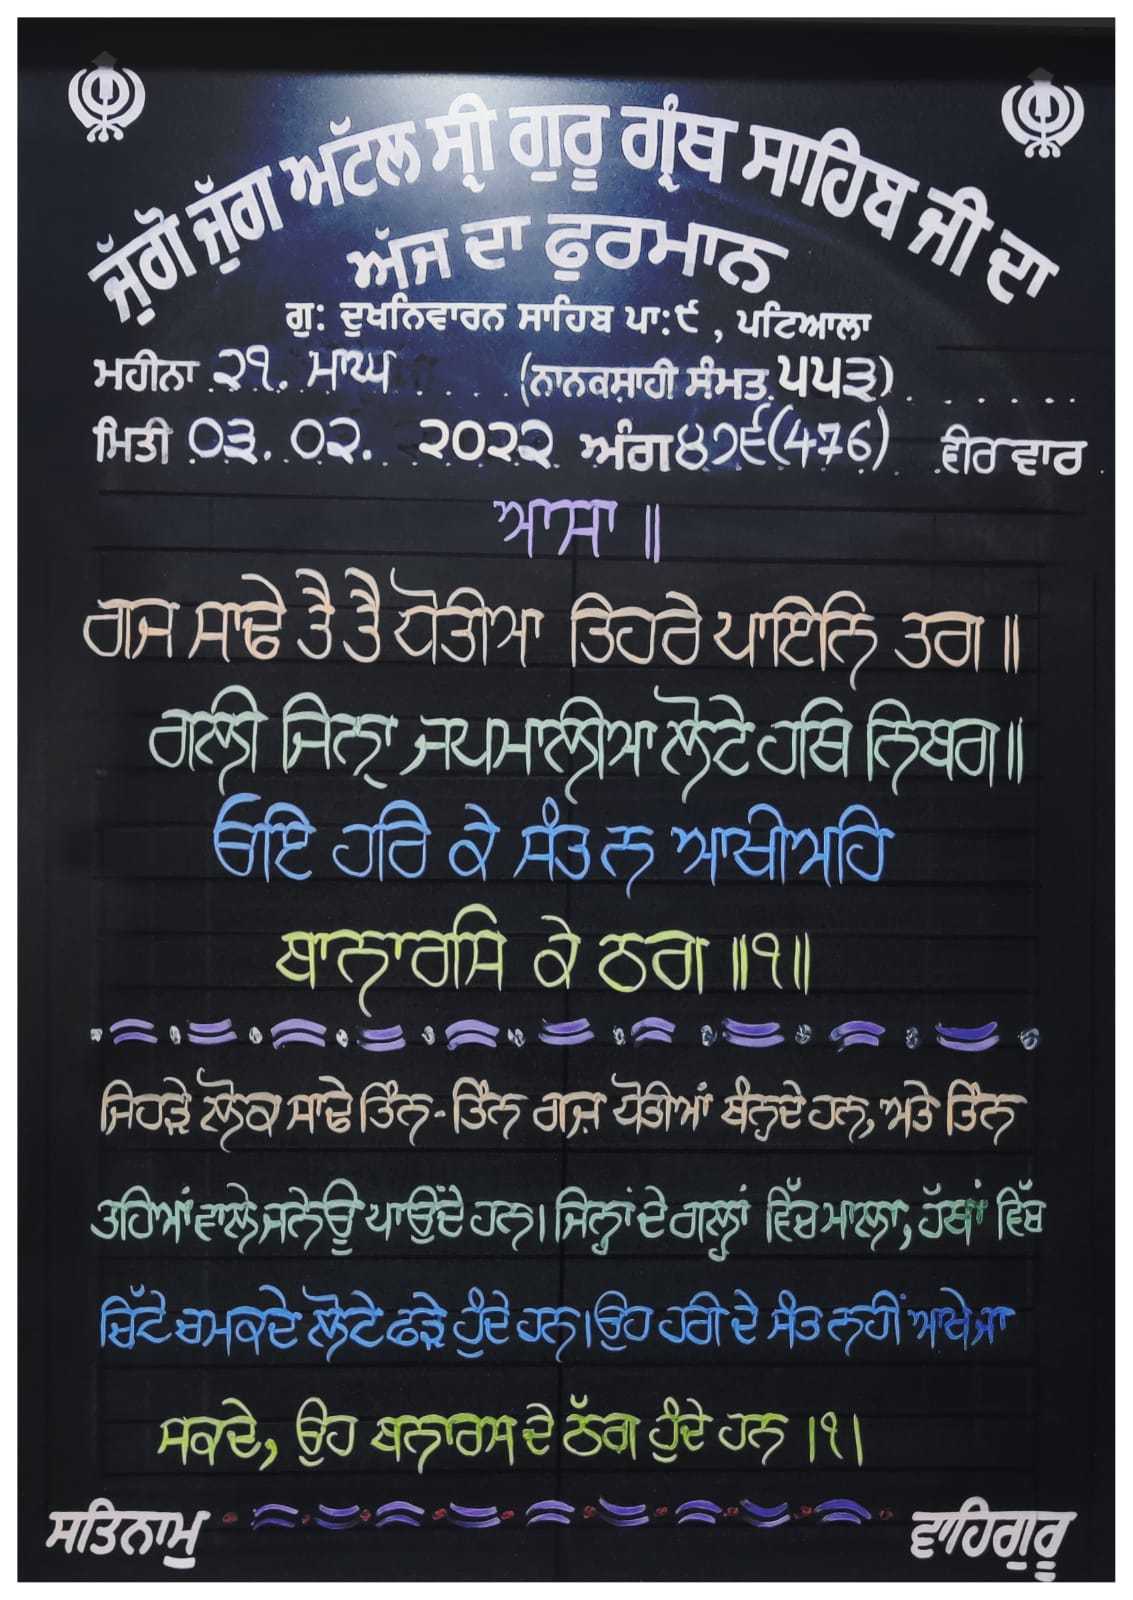 ਜੁੱਗੋ ਜੁੱਗ ਅਟੱਲ ਸ੍ਰੀ ਗੁਰੂ ਗ੍ਰੰਥ ਸਾਹਿਬ ਜੀ ਦਾ
ਅੱਜ ਦਾ ਫੁਰਮਾਨ
ਗੁ: ਦੁਖਨਿਵਾਰਨ ਸਾਹਿਬ ਪਾ:੯ , ਪਟਿਆਲਾ
ਮਹੀਨਾ ੨੧. ਮਾਘ (ਨਾਨਕਸ਼ਾਹੀ ਸੰਮਤ ੫੫੩)
ਮਿਤੀ ੦੩. ੦੨. ੨੦੨੨ ਅੰਗ ੪੭੬(476) ਵੀਰ ਵਾਰ
ਆਸਾ ॥
ਗਜ ਸਾਢੇ ਤੈ ਤੈ ਧੋਤੀਆ ਤਿਹਰੇ ਪਾਇਨਿ ਤਗ ॥
ਗਲੀ ਜਿਨਾ੍ ਜਪਮਾਲੀਆ ਲੋਟੇ ਹਥਿ ਨਿਬਗ॥
ਓਇ ਹਰਿ ਕੇ ਸੰਤ ਨ ਆਖੀਅਹਿ
ਬਾਨਾਰਸਿ ਕੇ ਠਗ ॥੧॥
ਜਿਹੜੇ ਲੋਕ ਸਾਢੇ ਤਿੰਨ-ਤਿੰਨ ਗਜ਼ ਧੋਤੀਆਂ ਬੰਨ੍ਹਦੇ ਹਨ, ਅਤੇ ਤਿੰਨ
ਤਹਿਆਂ ਵਾਲੇ ਜਨੇਊ ਪਾਉਂਦੇ ਹਨ। ਜਿਨ੍ਹਾਂ ਦੇ ਗਲ੍ਹਾਂ ਵਿੱਚ ਮਾਲਾ, ਹੱਥਾਂ ਵਿੱਚ
ਚਿੱਟੇ ਚਮਕਦੇ ਲੋਟੇ ਫੜੇ ਹੁੰਦੇ ਹਨ। ਉਹ ਹਰੀ ਦੇ ਸੰਤ ਨਹੀਂ ਆਖੇ ਜਾ
ਸਕਦੇ, ਉਹ ਬਨਾਰਸ ਦੇ ਠੱਗ ਹੁੰਦੇ ਹਨ ।੧।
ਸਤਿਨਾਮੁ ਵਾਹਿਗੁਰੂ